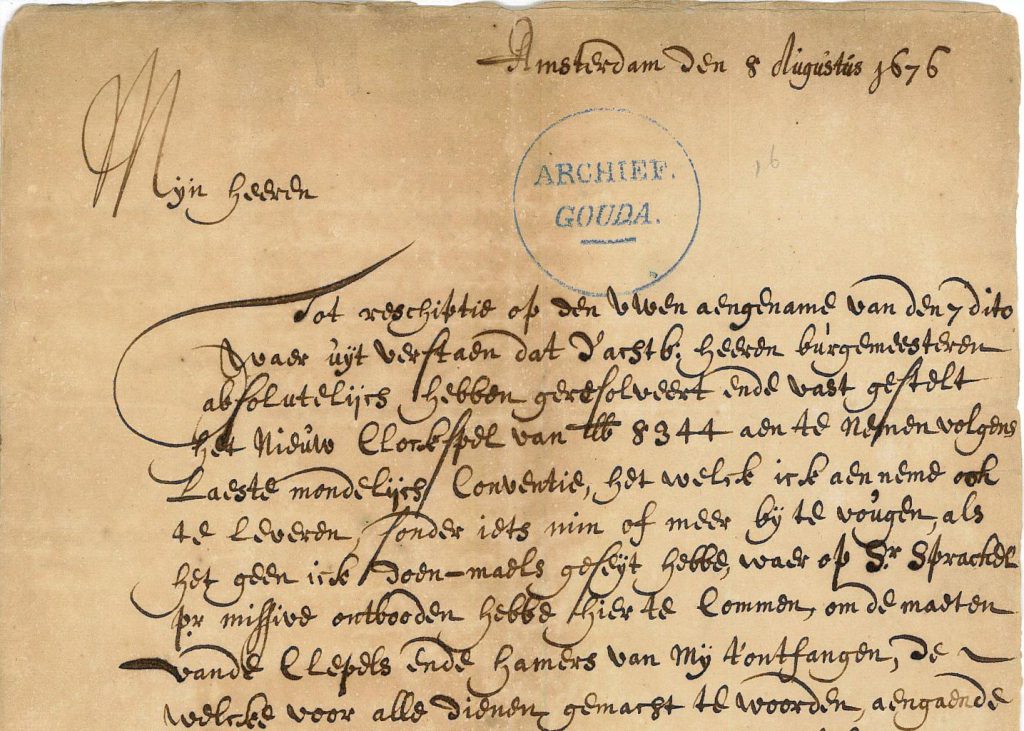 Amsterdam den 8 Augustus 1676
16
ARCHIEF.
GOUDA.
Myn heeren
Tot reschiptie op den uwen aengename van den 7 dito
waer uyt verstaen dat d'achtb: heeren burgemeesteren
absolutelijch hebben geresolveert ende vast gestelt
het Nieuw Clockspel van lb 8344 aen te Nemen volgens
Laeste mondelijch Conventie, het welck ick aenneme ook
te Leveren, sonder iets min of meer by te vougen, als
het geen ick doen-maels geseyt hebbe, waer op Sr. Sprackel
pr missive ontbooden hebbe hier te Commen, om de maeten
vande Clepels ende hamers van My t'ontfangen, de
welcke voor alle dienen gemacht te woorden, aengaende